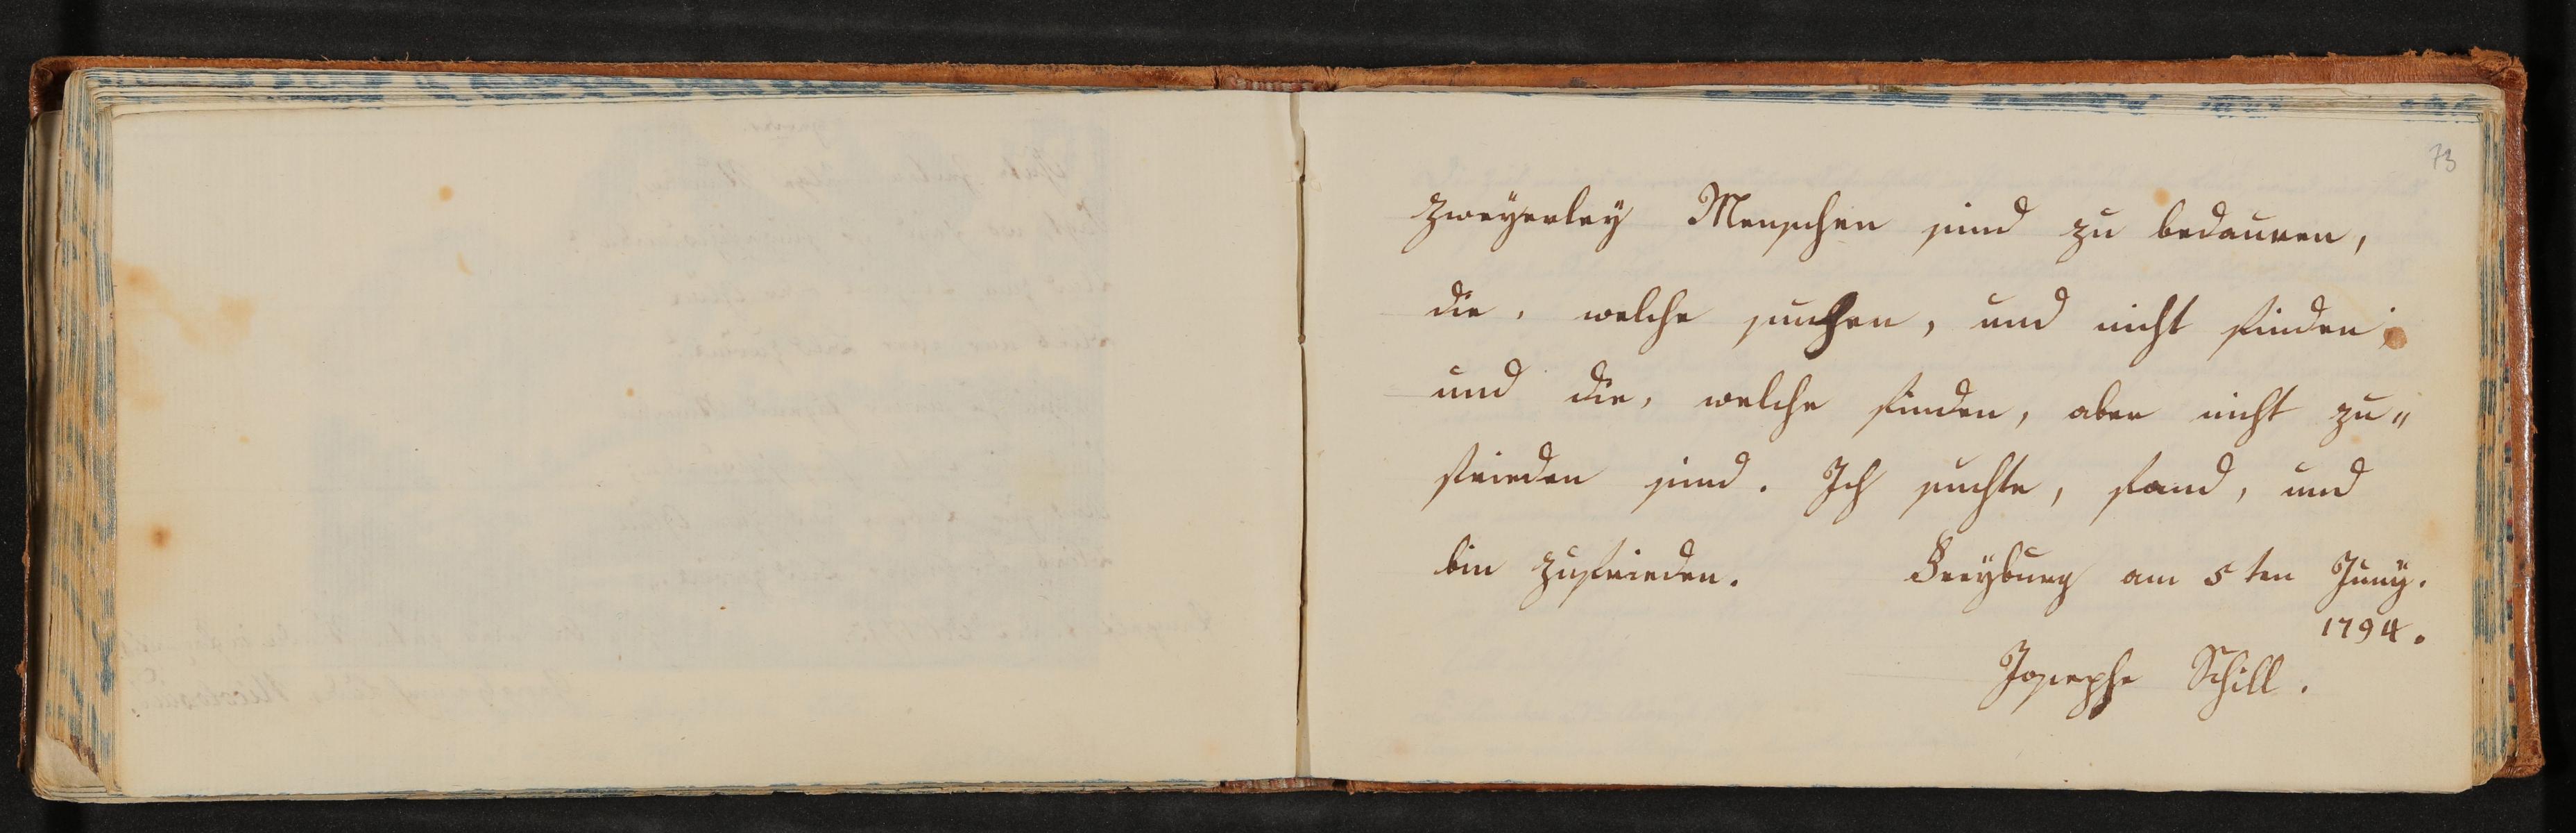 73
Zweyerley Menschen sind zu bedauren,
die, welche suchen, und nicht finden;
und die, welche finden, aber nicht zu„
frieden sind. Ich suchte, fand, und
bin zufrieden. Freyburg am 5ten Juny.
1794.
Josephe Schill.